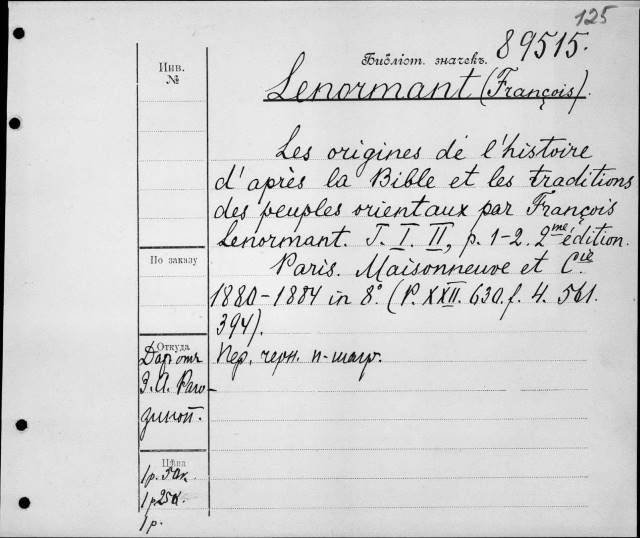 125
Библіот. значекъ. 89515.
Инв.
№
Lenormant (François).
Les origines de l'histoire
d'après la Bible et les traditions
des peuples orientaux par François
Lenormant. T. I. II, p. 1-2. 2me édition.
По заказу
Paris. Maisonneuve et Cie
1880-1884 in 8°. (P. XXII. 630. f. 4. 561.
394).
Откуда
Даръ отъ
З. А. Раго-
зиной.
Пер. черн. п-шагр.
Цѣна
1 р. 50 к.
1 р. 25 к.
1 р.